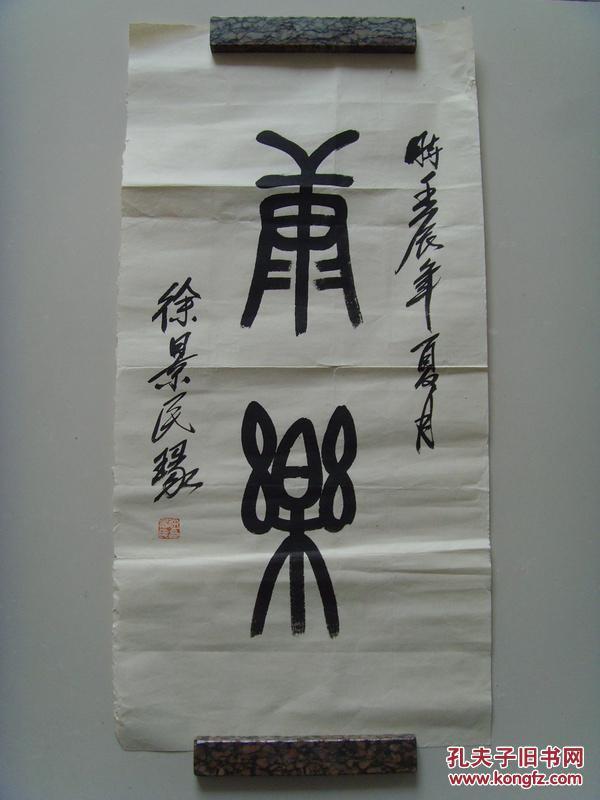 時壬辰年夏月
康樂
徐景民篆
孔夫子旧书网
www.kongfz.com